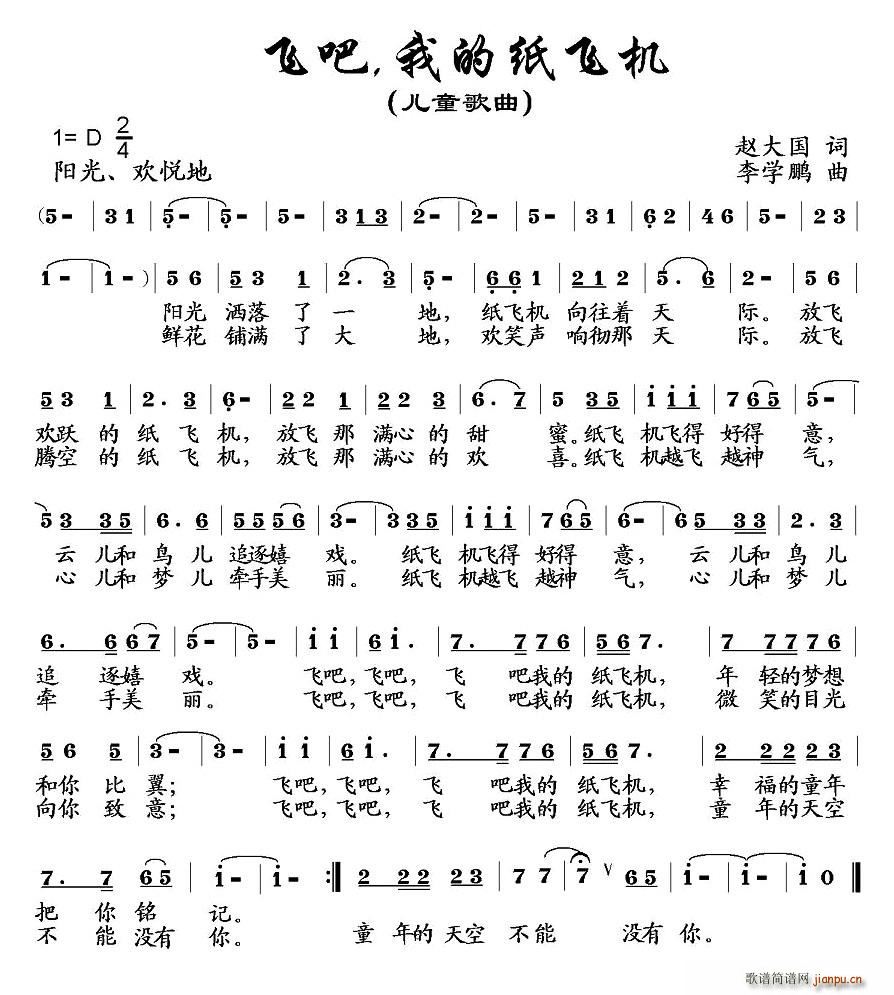 飞吧,我的纸飞机
(儿童歌曲)
1= D 2/4
赵大国 词
阳光、欢悦地
李学鹏 曲
(5 - | 3 1 | 5 - | 5 - | 5 - | 3 1 3 | 2 - | 2 - | 5 - | 3 1 | 6 2 | 4 6 | 5 - | 2 3 |
1 - | 1 - ) | 5 6 | 5 3 1 | 2 . 3 | 5 - | 6 6 1 | 2 1 2 | 5 . 6 | 2 - | 5 6 |
阳光 洒落 了 一 地, 纸飞机 向往着 天 际。 放飞
鲜花 铺满 了 大 地, 欢笑声 响彻那 天 际。 放飞
5 3 1 | 2 . 3 | 6 - | 2 2 1 | 2 2 3 | 6 . 7 | 5 3 5 | i i i | 7 6 5 | 5 - |
欢跃 的 纸 飞 机, 放飞 那 满心 的 甜 蜜。纸飞 机飞得 好得 意,
腾空 的 纸 飞 机, 放飞 那 满心 的 欢 喜。纸飞 机越飞 越神 气,
5 3 3 5 | 6 . 6 | 5 5 5 6 | 3 - | 3 3 5 | i i i | 7 6 5 | 6 - | 6 5 3 3 | 2 . 3 |
云 儿和 鸟 儿 追逐嬉 戏。 纸飞 机飞得 好得 意, 云 儿和 鸟儿
心 儿和 梦 儿 牵手美 丽。 纸飞 机越飞 越神 气, 心 儿和 梦儿
6 . 6 6 7 | 5 - | 5 - | i i | 6 i . | 7 . 7 7 6 | 5 6 7 . | 7 7 7 7 6 |
追 逐嬉 戏。 飞吧,飞吧, 飞 吧我的 纸飞机, 年 轻的梦想
牵 手美 丽。 飞吧,飞吧, 飞 吧我的 纸飞机, 微 笑的目光
5 6 5 | 3 - | 3 - | i i | 6 i . | 7 . 7 7 6 | 5 6 7 . | 2 2 2 2 3 |
和你 比 翼; 飞吧,飞吧, 飞 吧我的 纸飞机, 幸 福的童年
向你 致 意; 飞吧,飞吧, 飞 吧我的 纸飞机, 童 年的天空
7 . 7 | 6 5 | i - | i - :‖ 2 2 2 2 3 | 7 7 | 7 ∨ | 6 5 | i - | i - | i 0 ‖
把 你 铭 记。
不 能 没有 你。 童 年的天空 不能 没有 你。
歌谱简谱网 jianpu.cn